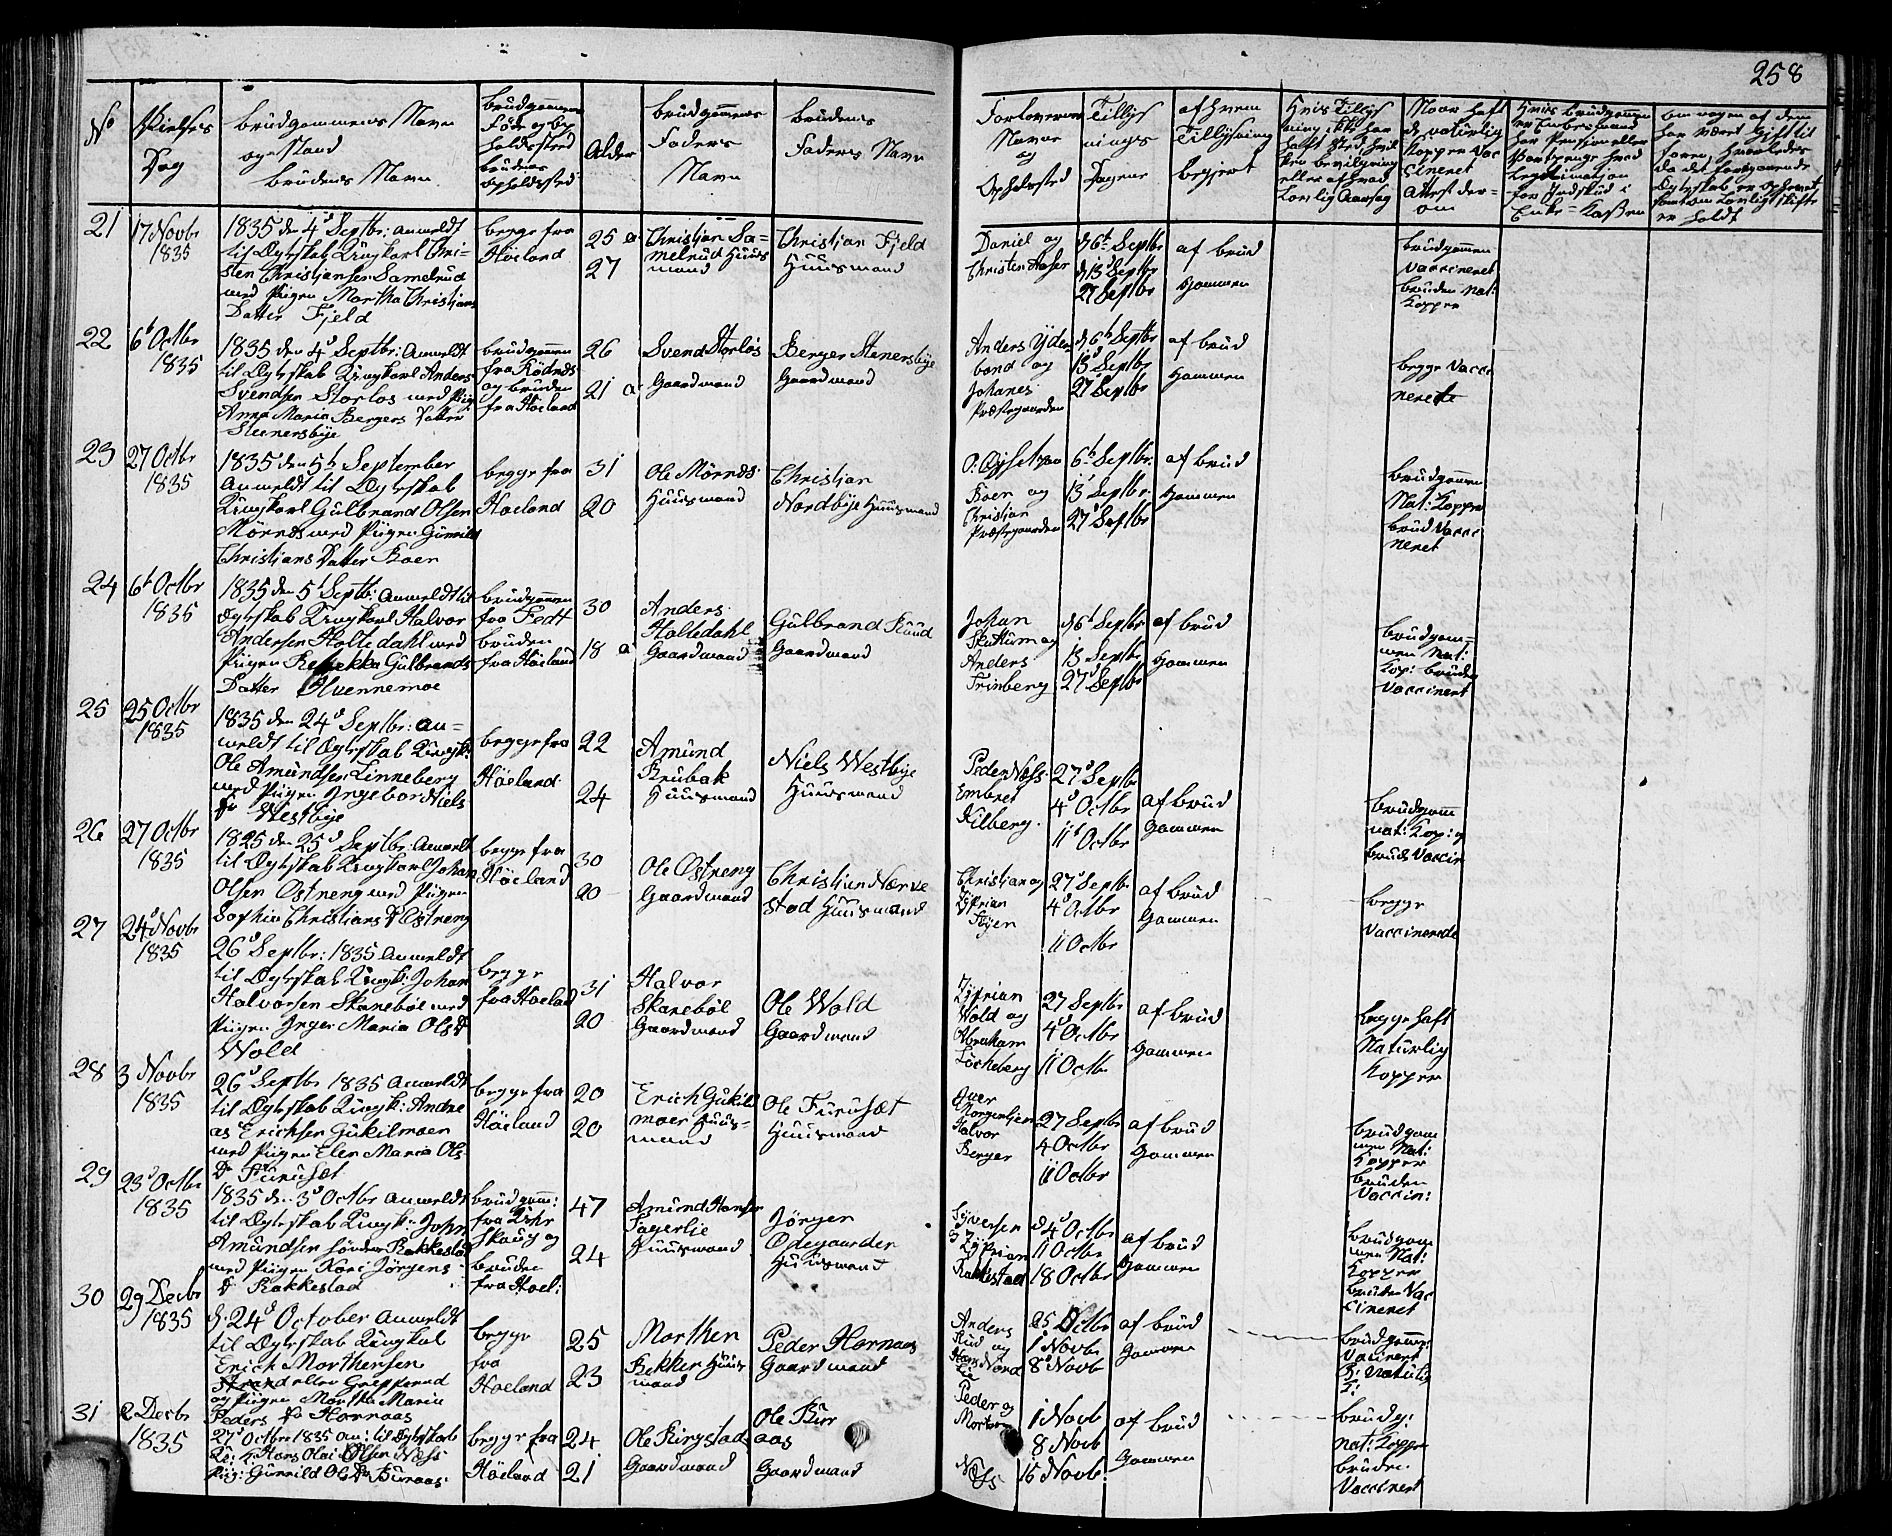 258
No
Vielses
Dag
Brudgommens Navn
og Stand
Brudens Navn
Brudgommens
Føde og Op
holdssted
Brudens
Opholdssted
Alder
Brudgommens
Faders
Navn
Brudens
Faders Navn
Forlovernes
Navne
og
Opholdsted
Tillys
nings
Dagene
af hvem
Tillysning
begjert
Hvis Tillys
ning ikke har
haft Sted, hvil
ken bevilgning
eller af hvad
Lovlig Aarsag
Naar haft
de natürlig
Kopper Vac
cineret
Attest der=
om
Hvis Brudgommen
er Enkemand
for Indskud i
Enke=Kassen
om nogen af dem
har været Gift til
foren, hvorledes
da det forrige
Egteskab er ophævet
samt om Lovligt skifte
er holdt
21
17 Novbr
1835
1835 den 4d Septbr: anmeldt
til Egteskab Ungkarl Chri=
sten Christiansen Samelrud
med Pigen Martha Christians
Datter Fjeld
begge fra
Höeland
25 a
27
Christian Sa=
melrud Huus
mand
Christian Fjeld
Huusmand
Daniel og
Christen Haser
d 6te Septbr
d 13d Septbr
27 Septbr
af Brud
Gommen
Brudgommen
Vaccineret
bruden Nat:
Kopper
22
6t Octbr
1835
1835 den 4d Septbr: Anmeldt
til Egteskab Ungkarl Anders
Svendsen Storløs med Pig
Anna Maria Bergers Datter
Stenersbye
Brudgommen
fra Rødnes
og Bruden
fra Höeland
26
21 a
Svend Storløs
Gaardmand
Berger Stenersbye
Gaardmand
Anders Yder
bond og
Johanes
Præstegaarden
d 6te Septbr
13d Septbr
27d Septbr
af Brud
Gommen
begge Vacci
nerete
23
27 Octbr
1835
1835 den 5t September
Anmeldt til Egteskab
Ungkarl Gulbrand Olsen
Mörnes med Pigen Gunnild
Christians Datter Boer
begge fra
Höeland
31
20
Ole Mörnes
Huusmand
Christian
Nordbye Huusmand
Boer og
Christian
Præstegaarden
6t Septbr:
13 Septbr
27d Septbr
af Brud
Gommen
Brudgommen
Nat: Kopper
Brud Vacci
neret
24
6t Octbr
1835
1835 den 5t Septbr: Anmeldt til
Egteskab Ungkarl Halvor
Andersen Holtedahl med
Pigen Rebekka Gulbrands
Datter Quennemoe
Brudgommen
fra Fedt
Bruden
fra Höeland
30
18 a
Anders
Holtedahl
Gaardmand
Gulbrand Ruud
Gaardmand
Johan
Skuttum og
Anders
Frinberg
d 6t Septbr
13 Septbr
27d Septbr
af Brud
Gommen
Brudgom=
men Nat:
Kop: bruden
Vaccinert
25
25 Octbr
1835
1835 den 24d Septbr: An=
meldt til Egteskab Ungk:
Ole Amundsen Linneberg
med Pigen Ingebor Niels
Dr Westbye
begge fra
Höeland
22
24
Amund
Brubak
Huusmand
Niels Westbye
Huusmand
Peder Næss
Embret
Kilberg
27d Septbr
4d Octbr
11t Octbr
af Brud
Gommen
Brudgomm
nat: Kop: og
Brud Vaccin
26
27 Octbr
1835
1825 den 25d Septbr: Anmeldt
til Egteskab Ungkarl Johan
Olsen Ostneng med Pigen
Sophie Christians Dr Ostneng
begge fra
Höeland
30
20
Ole Ostneng
Gaardmand
Christian Nærve
stad Huusmand
Christian og
Zyprian
Töyen
27d Septbr
4d Octbr
11 Octbr
af Brud
Gommen
begge
Vaccinerede
27
24d Novbr
1835
26d Septbr: 1835 Anmeldt
til Egteskab Ungk: Johan
Halvorsen Skaneböl med
Pigen Inger Maria Ols Dr
Wold
begge
fra Höeland
31
20
Halvor
Skaneböl
Gaardmand
Ole Wold
Gaardmand
Zyprian
Wold og
Abraham
Löcheberg
27 Septbr
4d Octbr
11 Octbr
af Brud
Gommen
begge haft
Natürlig
Kopper
28
3 Novbr
1835
26d Septbr 1835 Anmeldt
til Egteskab Ungk: Andre
as Erichsen Gukilmoen
med Pigen Elen Maria Ols
Dr Furuset
begge fra
Höeland
20
20
Erich Gukil
moen Huus=
mand
Ole Furuset
Huusmand
Iver
Morgenstjern
Halvor
Berger
27 Septbr
4 Octbr
11 Octbr
af Brud
Gommen
Brudgom
men Nat:
Kopper
bruden
Vaccin:
29
23d Octbr
1835
1835 den 3d Octbr Anmeldt
til Egteskab Ungk: John
Amundsen söndre Rakkestad
med Pigen Kari Jörgens
Dr Rakkestad
Brudgom:
fra Urhr
Skoug og
bruden
fra Höel:
47
24
Amund Hansen
Fagerlie
Huusmand
Jörgen
Ödegaarden
Huusmand
Syversen
Zyprian
Rakkestad
d 4d Octbr
11 Octbr
18 Octbr
af Brud
Gommen
Brudgom
men Nat:
Kopper
Bruden Vac
cineret
30
29 Decbr
1835
d: 24d October Anmeldt
til Egteskab Ungkal
Erich Morthensen
Strand eller Grepperud
og Pigen Martha Maria
Peders Dr Hornaas
begge
fra
Höeland
25
23
Morthen
Bekken Huus
mand
Peder Hornaas
Gaardmand
Anders
Rud og
Hans Nord
lie
25 Octbr
1 Novbr
8d Novb
af Brud
Gommen
Brudgomm:
Vacinert
B: Natürlig
K:
31
2 Decbr
1835
27d Octbr 1835 An: til Egteskab
Un: K: Hans Olai Olsen Næss
Pig: Gunnild Ols Dr Buraas:
begge fra
Höeland
24
21
Ole Ringstad
Gaardmand
Ole Bur
aas
Gaardmand
Peder og
Morten
Næs
1 Novb
8 Novb
15 Novb.
af Brud
Gommen
brudg:
nat: Kopp
bruden
Vaccinert